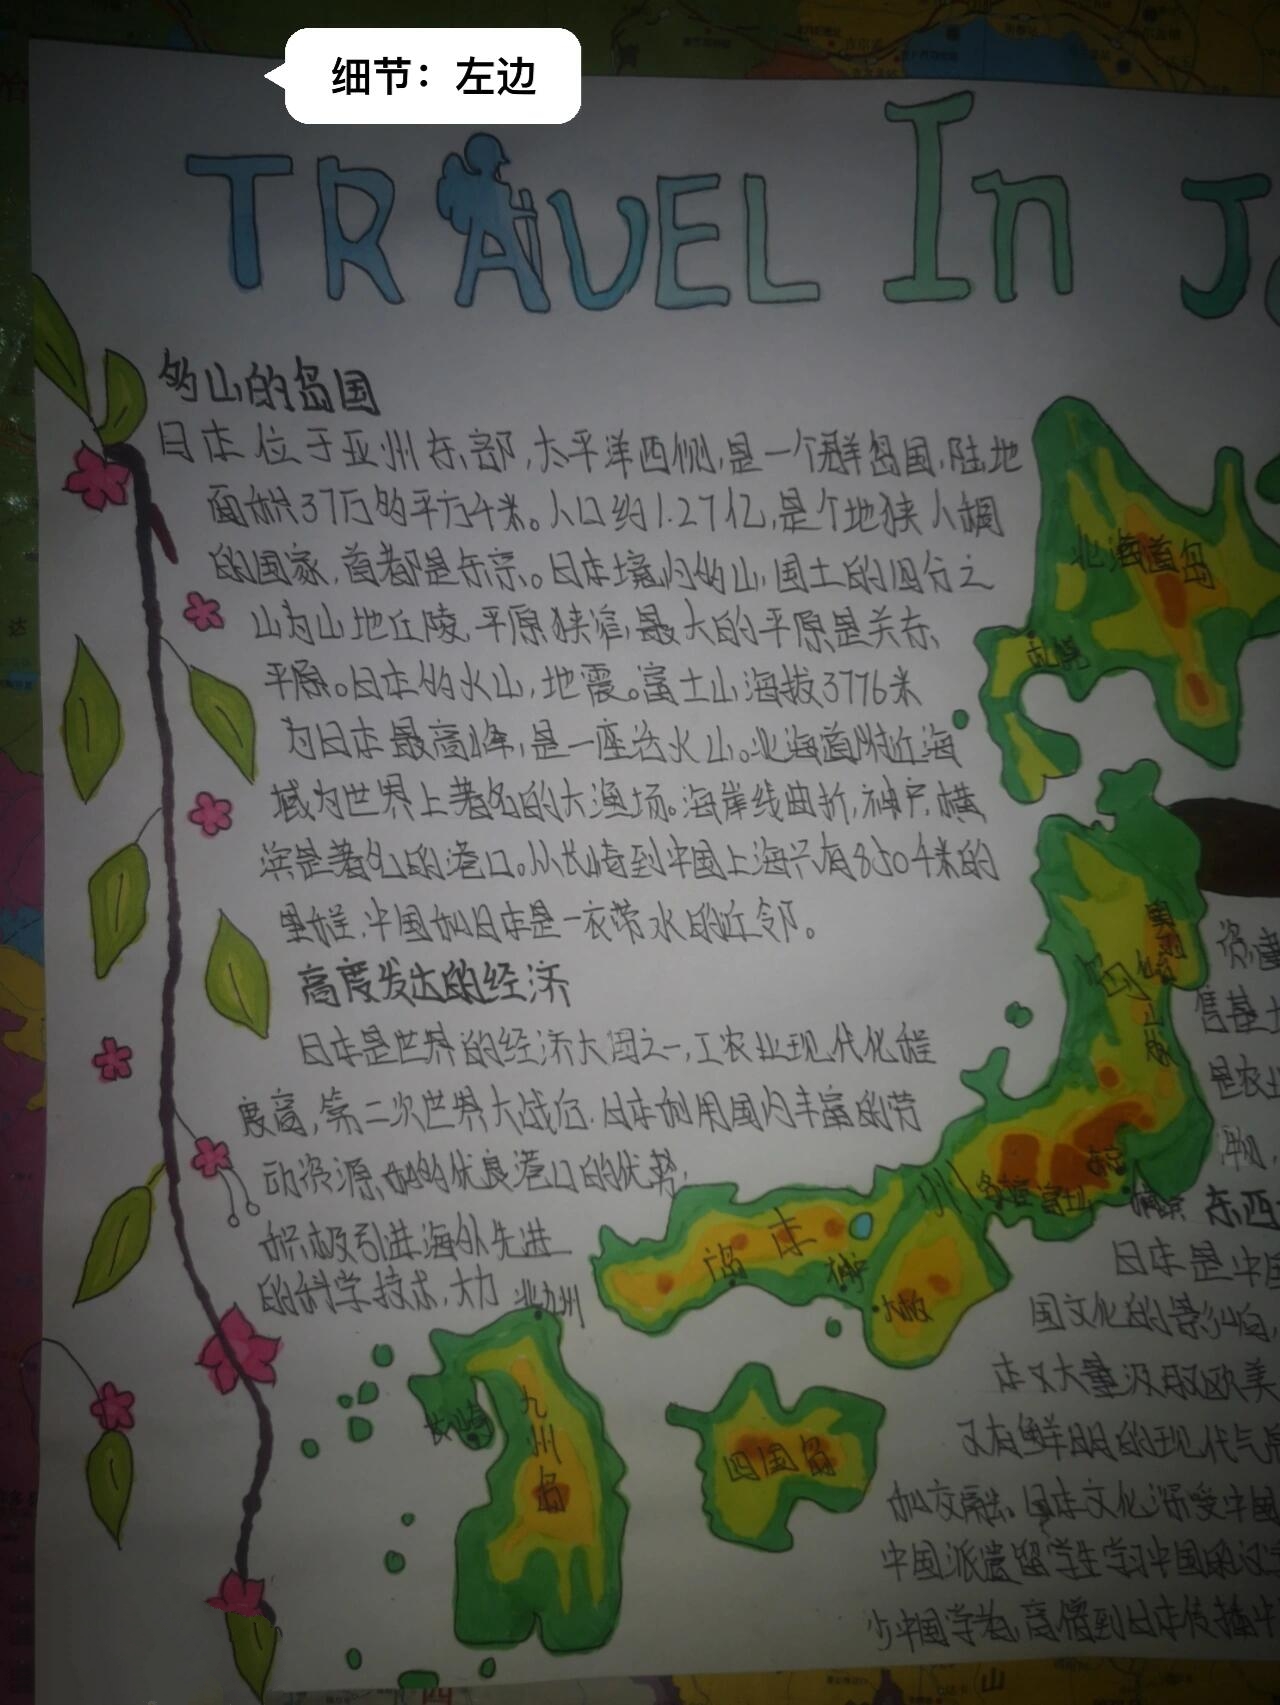 细节：左边
TRAVEL In Ja
多山的岛国
日本位于亚州东部，太平洋西侧，是一个群岛国，陆地
面积37万多平方千米。人口约1.27亿，是个地狭人稠
的国家，首都是东京。日本境内多山，国土的四分之
山为山地丘陵，平原狭窄，最大的平原是关东
平原。日本多火山，地震。富士山海拔3776米
为日本最高峰，是一座活火山。北海道附近海
域为世界上著名的大渔场。海岸线曲折，神户，横
滨是著名的港口。从长崎到中国上海只有850千米的
里程，中国和日本是一衣带水的近邻。
高度发达的经济
日本是世界的经济大国之一，工农业现代化程
度高，第二次世界大战后，日本利用国内丰富的劳
动资源，和的优良港口的优势，
积极引进海外先进
的科学技术，大力
北海道岛
札幌
本州岛
名古屋
富士山
东京
横滨
神户
大阪
北九州
长崎
九州岛
四国岛
资
售基
是农业
东西
日本是中国
国文化的影响，
本又大量汲取欧美
又有鲜明的现代气息
和交融。日本文化深受中国
中国派遣留学生学习中国的汉字
少中国学者，高僧到日本传播中
山
四
达